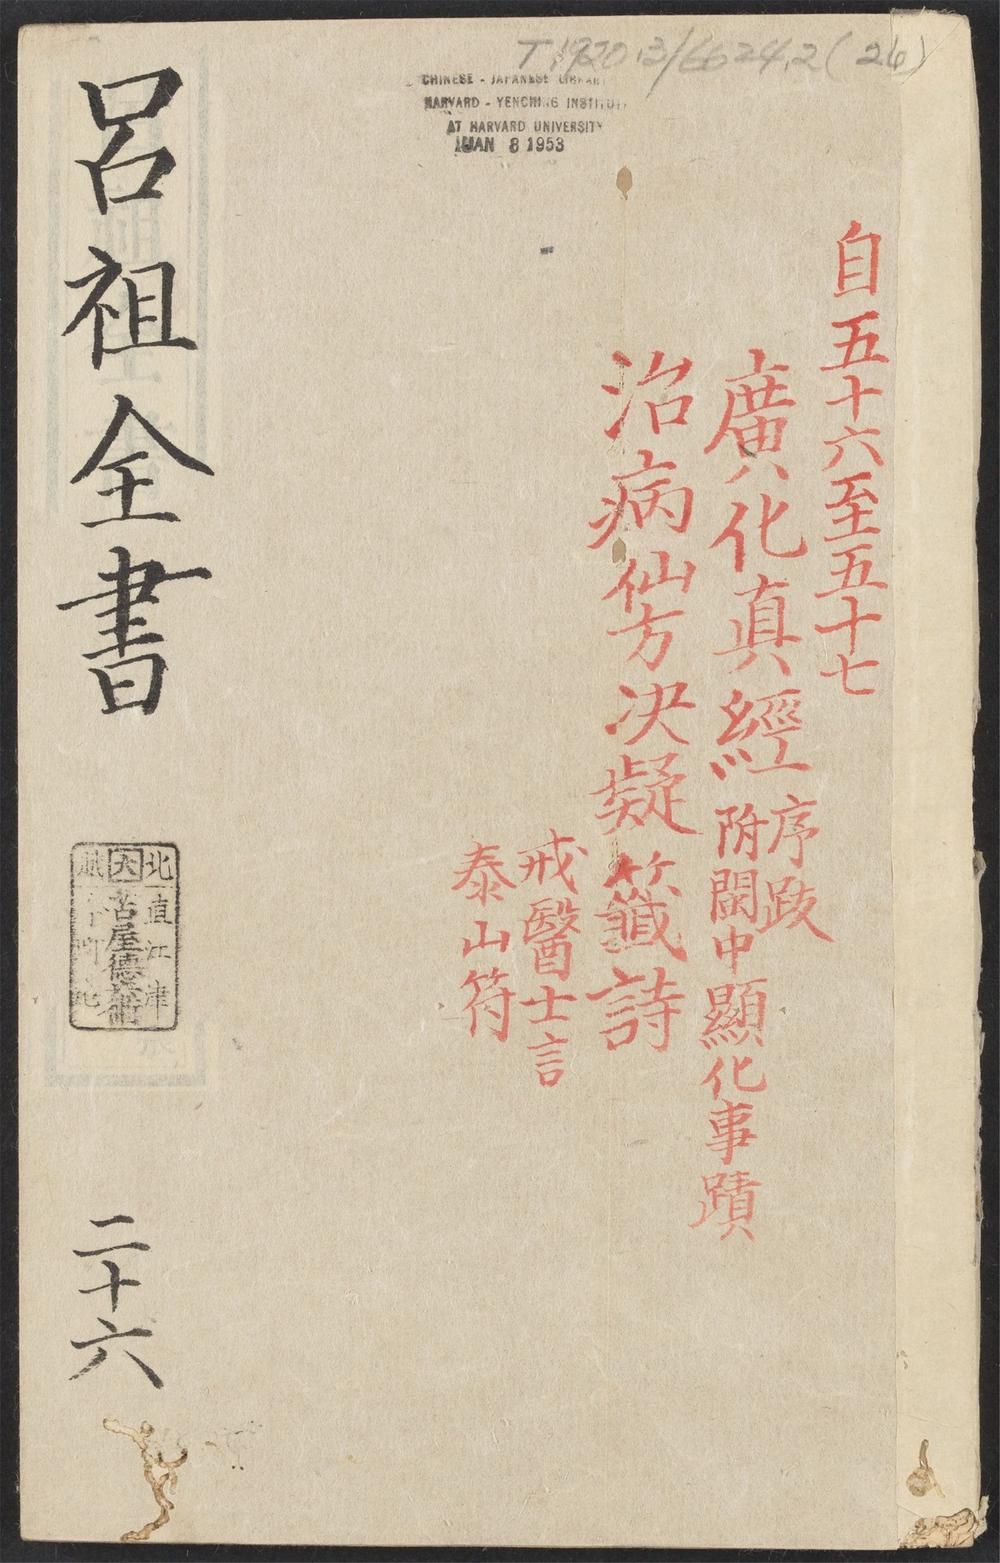 T 1920.3/6624.2 (26)
CHINESE - JAPANESE LIBRARY
HARVARD - YENCHING INSTITUTE
AT HARVARD UNIVERSITY
JAN 8 1953
自五十六至五十七
廣化真經
序跋
附閩中顯化事蹟
治病仙方决凝籤詩
戒醫士言
泰山符
呂祖全書
北直江津
大 古屋德
二十六